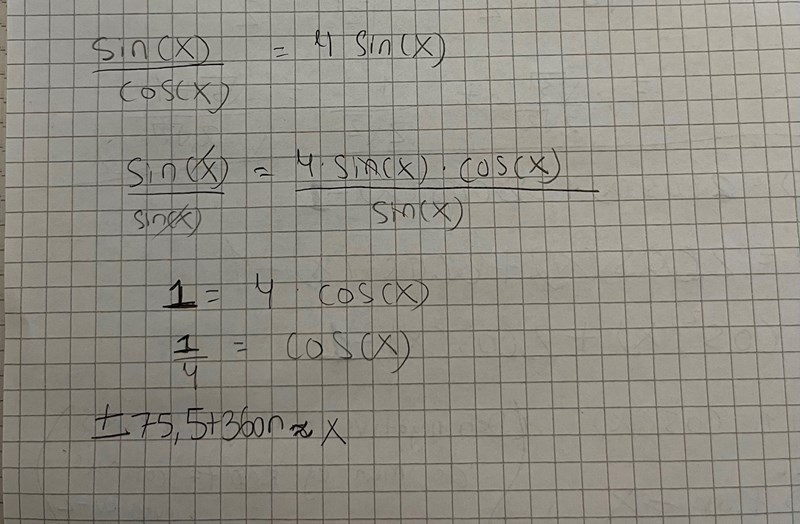 sin(x)/cos(x) = 4 sin(x)
sin(x)/sin(x) = 4·sin(x)·cos(x)/sin(x)
1 = 4·cos(x)
1/4 = cos(x)
±75,5+360n≈x